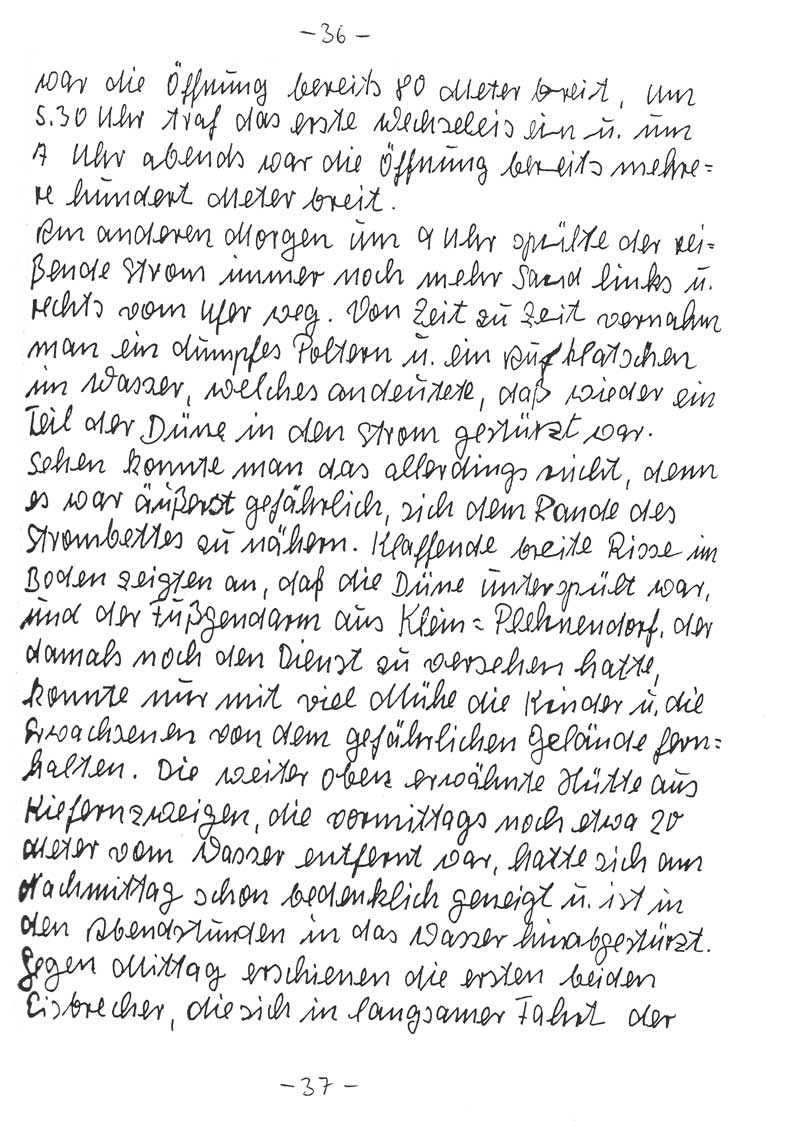 -36-
war die Öffnung bereits 80 Meter breit, um
5.30 Uhr traf das erste Weichseleis ein u. um
7 Uhr abends war die Öffnung bereits mehre=
re hundert Meter breit.
Am anderen Morgen um 9 Uhr spülte der rei=
ßende Strom immer noch mehr Sand links u.
rechts vom Ufer weg. Von Zeit zu Zeit vernahm
man ein dumpfes Poltern u. ein Aufklatschen
im Wasser, welches andeutete, daß wieder ein
Teil der Düne in den Strom gestürzt war.
Sehen konnte man das allerdings nicht, denn
es war äußerst gefährlich, sich dem Rande des
Strombettes zu nähern. Klaffende breite Risse im
Boden zeigten an, daß die Düne unterspült war,
und der Fußgendarm aus Klein=Plehnendorf, der
damals noch den Dienst zu versehen hatte,
konnte nur mit viel Mühe die Kinder u. die
Erwachsenen von dem gefährlichen Gelände fern=
halten. Die weiter oben erwähnte Hütte aus
Kiefernzweigen, die vormittags noch etwa 20
Meter vom Wasser entfernt war, hatte sich am
Nachmittag schon bedenklich geneigt u. ist in
den Abendstunden in das Wasser hinabgestürzt.
Gegen Mittag erschienen die ersten beiden
Eisbrecher, die sich in langsamer Fahrt der
-37-